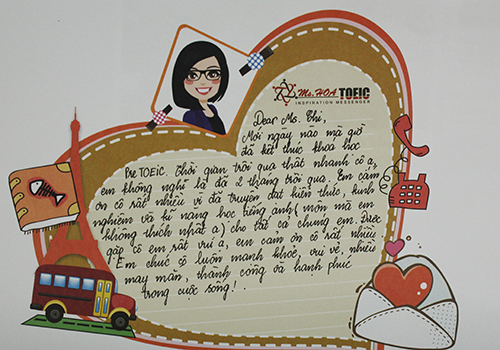 Ms.HOA TOEIC
INSPIRATION MESSENGER
Dear Ms. Thi,
Mới ngày nào mà giờ
đã kết thúc khóa học
Pre TOEIC. Thời gian trôi qua thật nhanh cô ạ,
em không nghĩ là đã 2 tháng trôi qua. Em cảm
ơn cô rất nhiều vì đã truyền đạt kiến thức, kinh
nghiệm và kĩ năng học tiếng anh (môn mà em
không thích nhất ạ) cho tất cả chúng em. Được
gặp cô em rất vui ạ, em cảm ơn cô rất nhiều
Em chúc cô luôn mạnh khỏe, vui vẻ, nhiều
may mắn, thành công và hạnh phúc
trong cuộc sống!